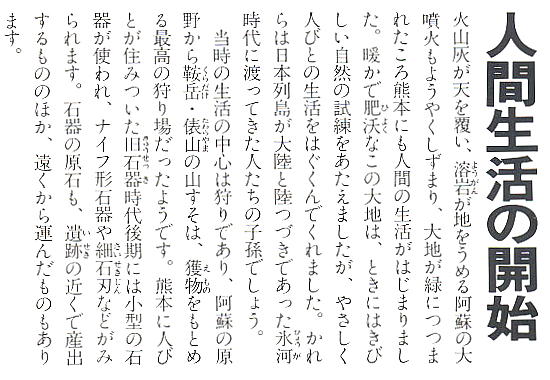 人間生活の開始
火山灰が天を覆い、溶岩が地をうめる阿蘇の大
噴火もようやくしずまり、大地が緑につつま
れたころ熊本にも人間の生活がはじまりまし
た。暖かで肥沃なこの大地は、ときにはきび
しい自然の試練をあたえましたが、やさしく
人びとの生活をはぐくんでくれました。かれ
らは日本列島が大陸と陸つづきであった氷河
時代に渡ってきた人たちの子孫でしょう。
当時の生活の中心は狩りであり、阿蘇の原
野から鞍岳・俵山の山すそは、獲物をもとめ
る最高の狩り場だったようです。熊本に人び
とが住みついた旧石器時代後期には小型の石
器が使われ、ナイフ形石器や細石刃などがみ
られます。石器の原石も、遺跡の近くで産出
するもののほか、遠くから運んだものもあり
ます。